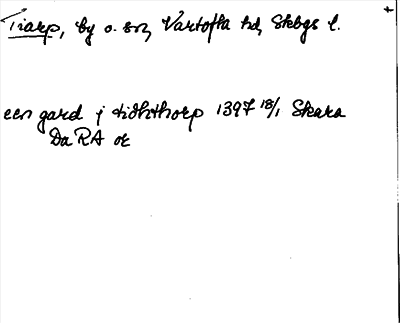 Tiarp, by o. sn, Vartofta hd, Skbgs l.
een gard j tidhthorp 1397 18/1 Skara
DaRA or